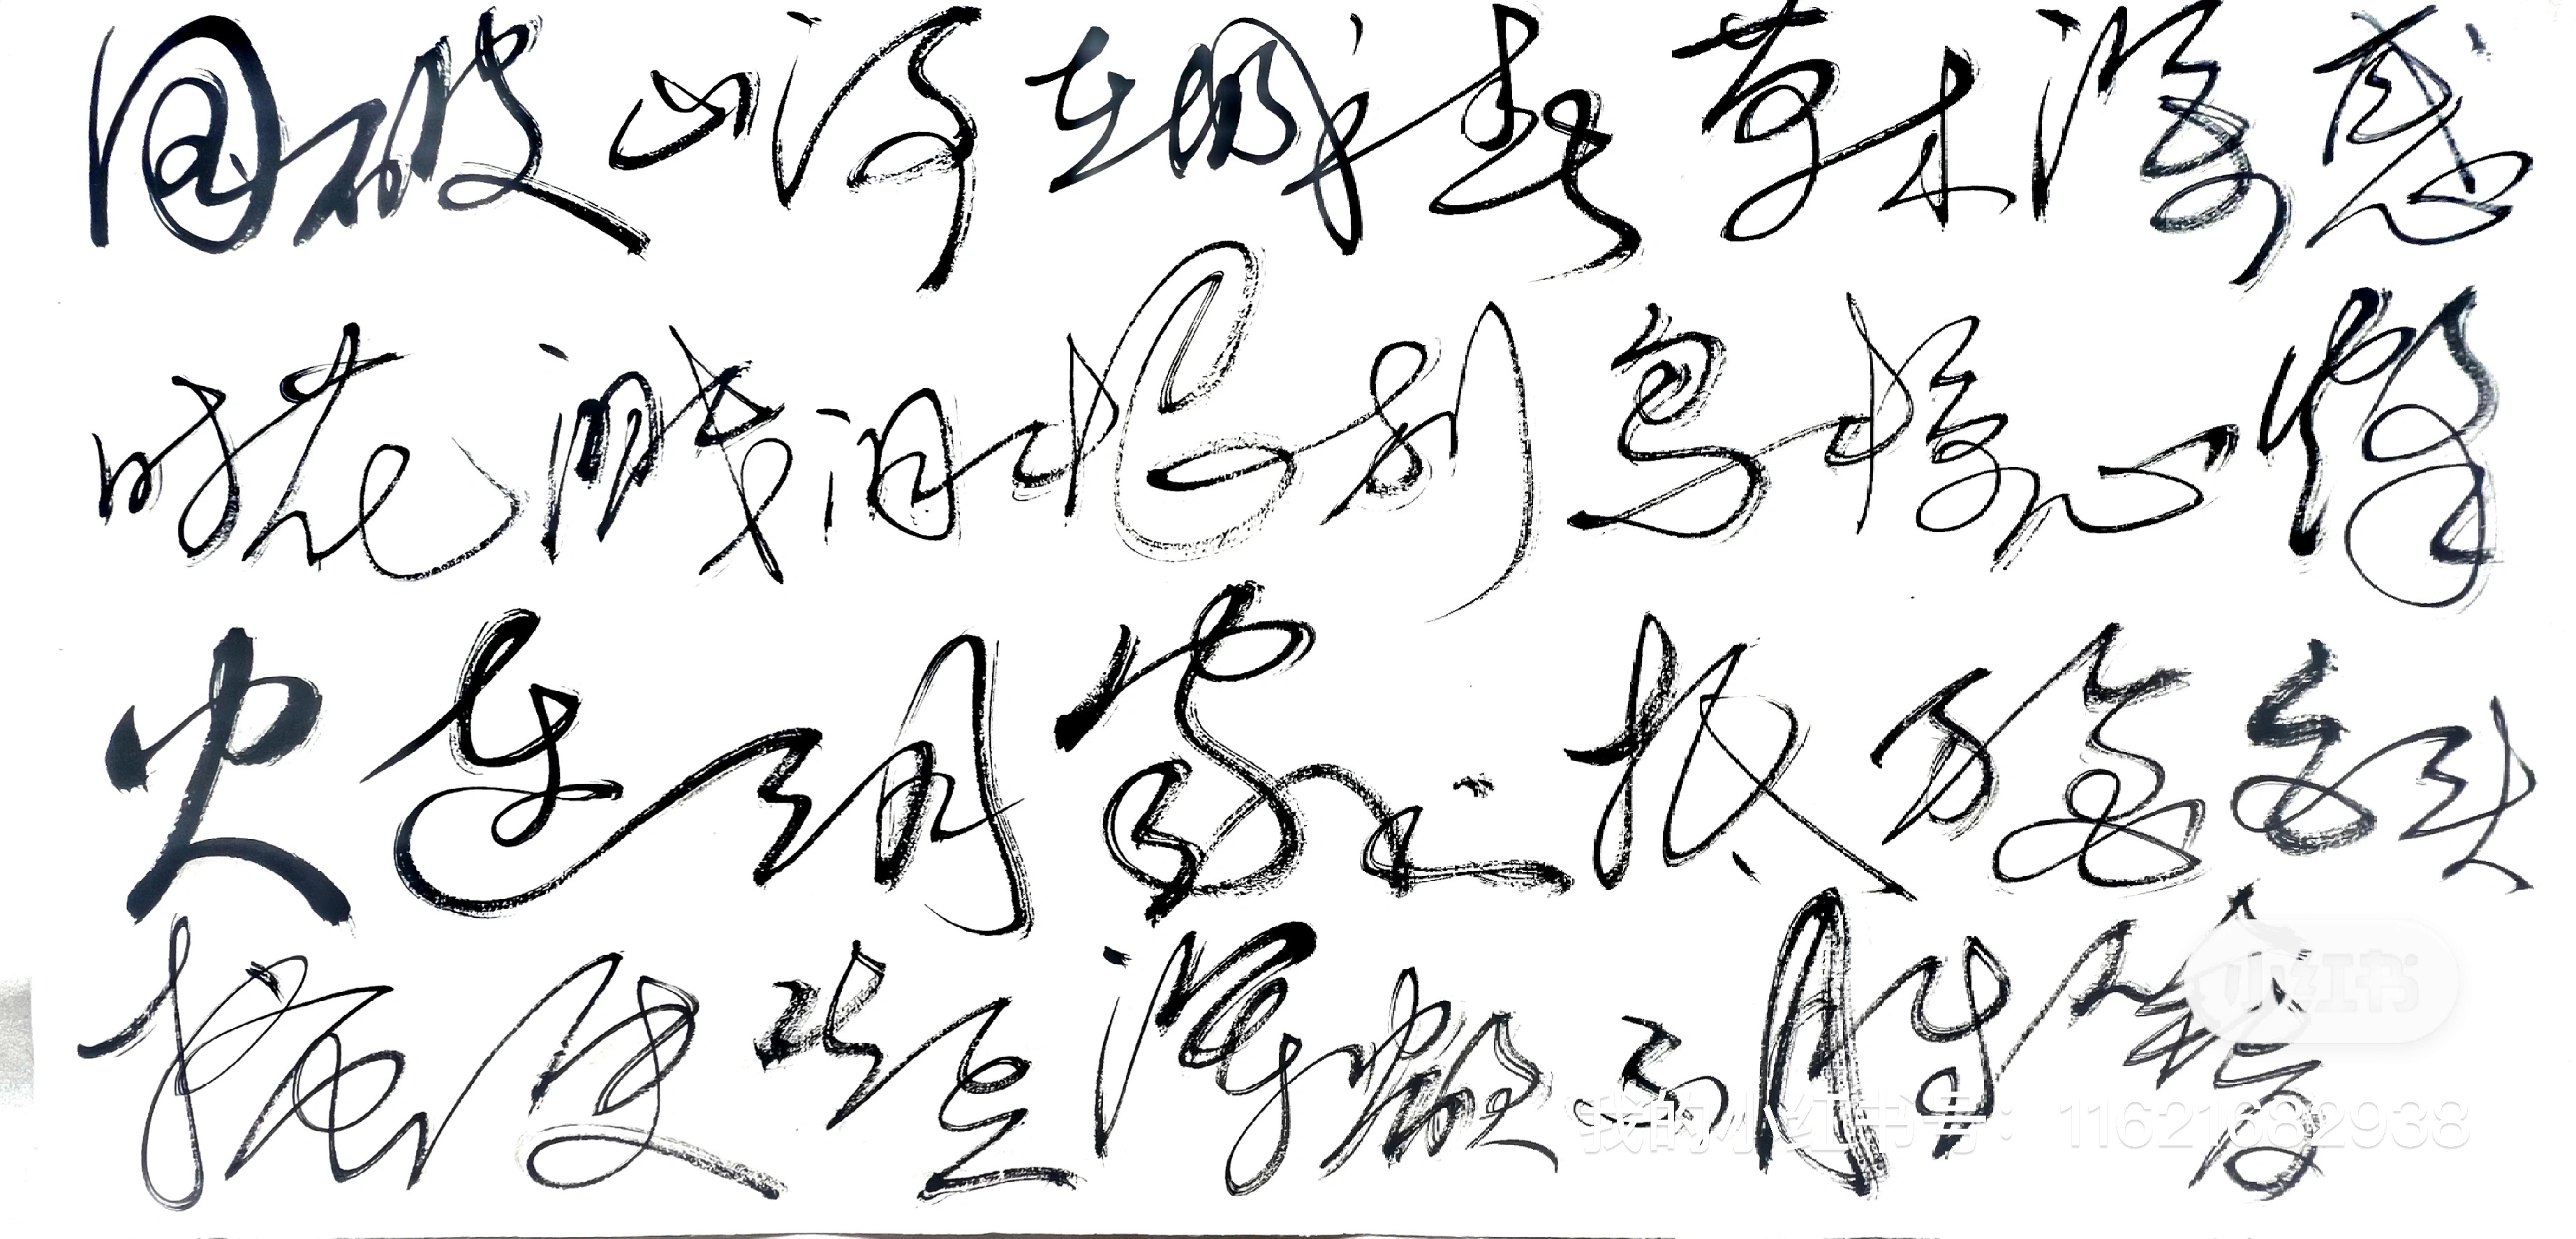 国破山河在城春草木深感
时花溅泪恨别鸟惊心烽
火连三月家书抵万金白头
搔更短浑欲不胜簪
小红书
我的小红书号：11621682938